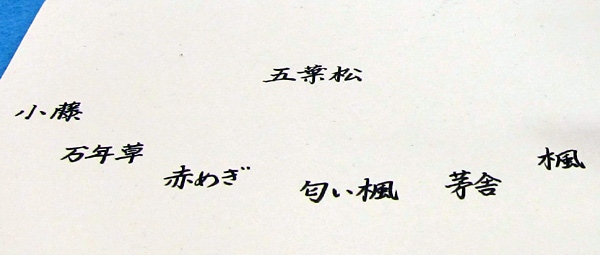 五葉松
小藤
万年草
赤めぎ
匂い楓
茅舎
楓